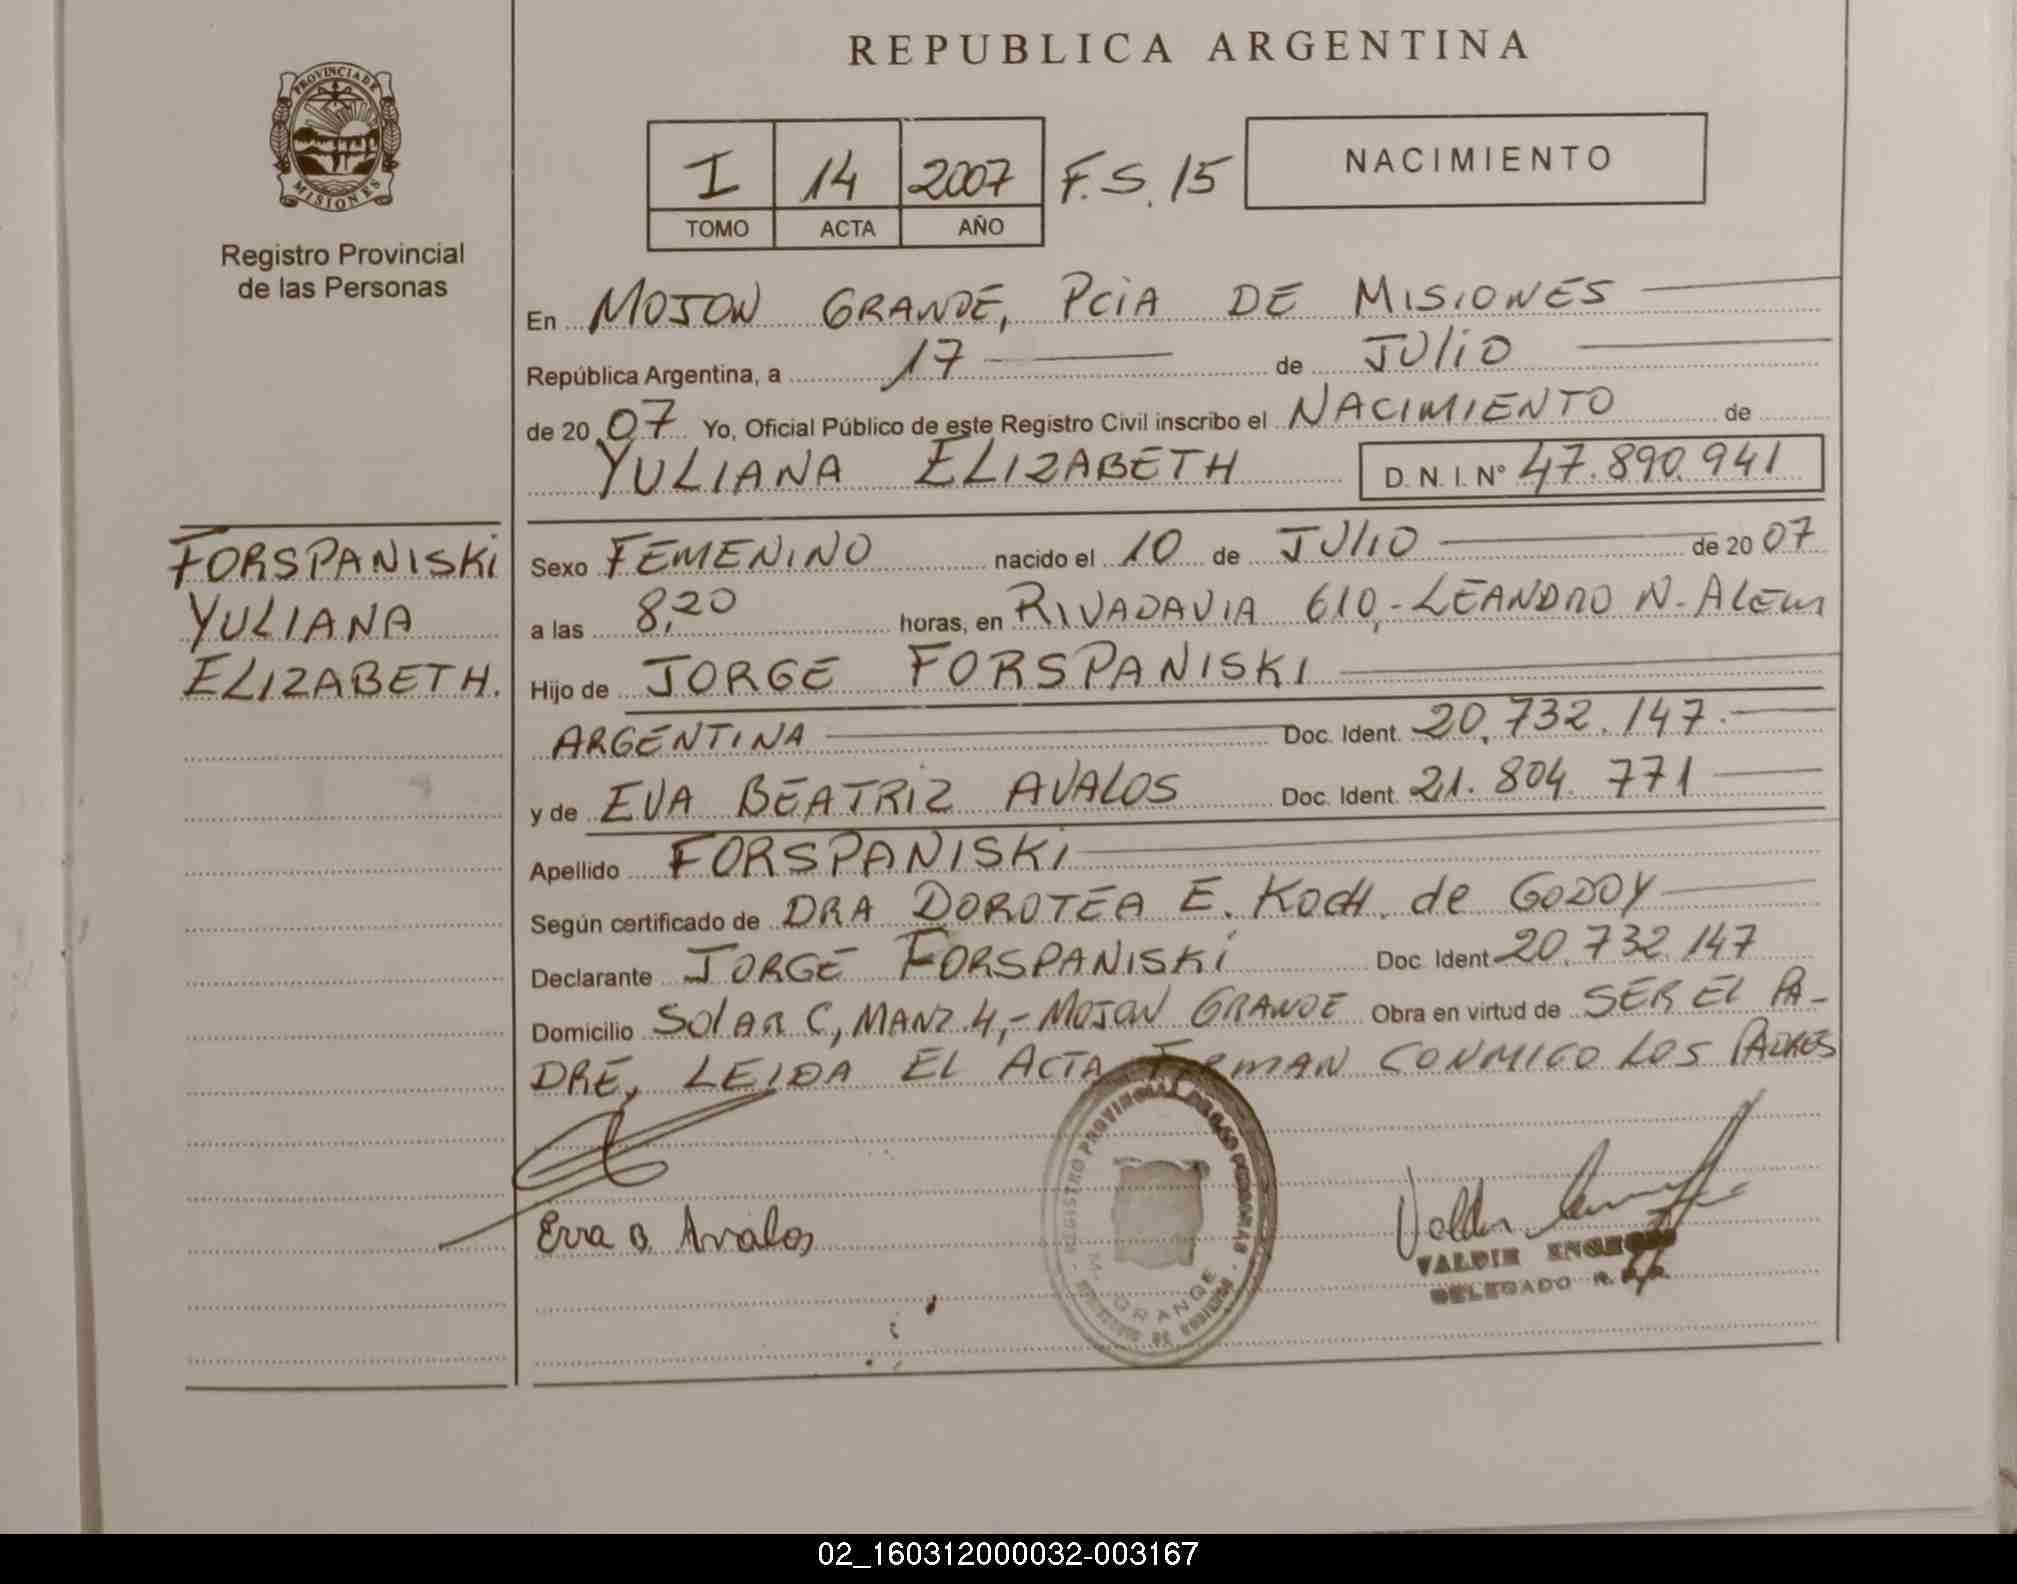 REPUBLICA ARGENTINA
PROVINCIA DE
MISIONES
Registro Provincial
de las Personas
I 14 2007 F.S. 15
TOMO ACTA AÑO
NACIMIENTO
En MOJON GRANDE, PCIA DE MISIONES
República Argentina, a 17 de JULIO
de 2007 Yo, Oficial Público de este Registro Civil inscribo el NACIMIENTO de
YULIANA ELIZABETH D.N.I. Nº 47.890.941
FORSPANISKI
YULIANA
ELIZABETH.
Sexo FEMENINO nacido el 10 de JULIO de 2007
a las 8,20 horas, en RIVADAVIA 610,-LEANDRO N-ALEM
Hijo de JORGE FORSPANISKI
ARGENTINA Doc. Ident. 20.732.147.
y de EVA BEATRIZ AVALOS Doc. Ident. 21.804.771
Apellido FORSPANISKI
Según certificado de DRA DOROTEA E. KOCH. de GODOY
Declarante JORGE FORSPANISKI Doc. Ident 20.732.147
Domicilio SOLAR C, MANZ.4,-MOJON GRANDE Obra en virtud de SER EL PA-
DRE, LEIDA EL ACTA FIRMAN CONMIGO LOS PADRES
REGISTRO PROVINCIAL DE LAS PERSONAS
M. GRANDE
Eva B. Avalos
VALDIR
DELEGADO R.P.P.
02_160312000032-003167